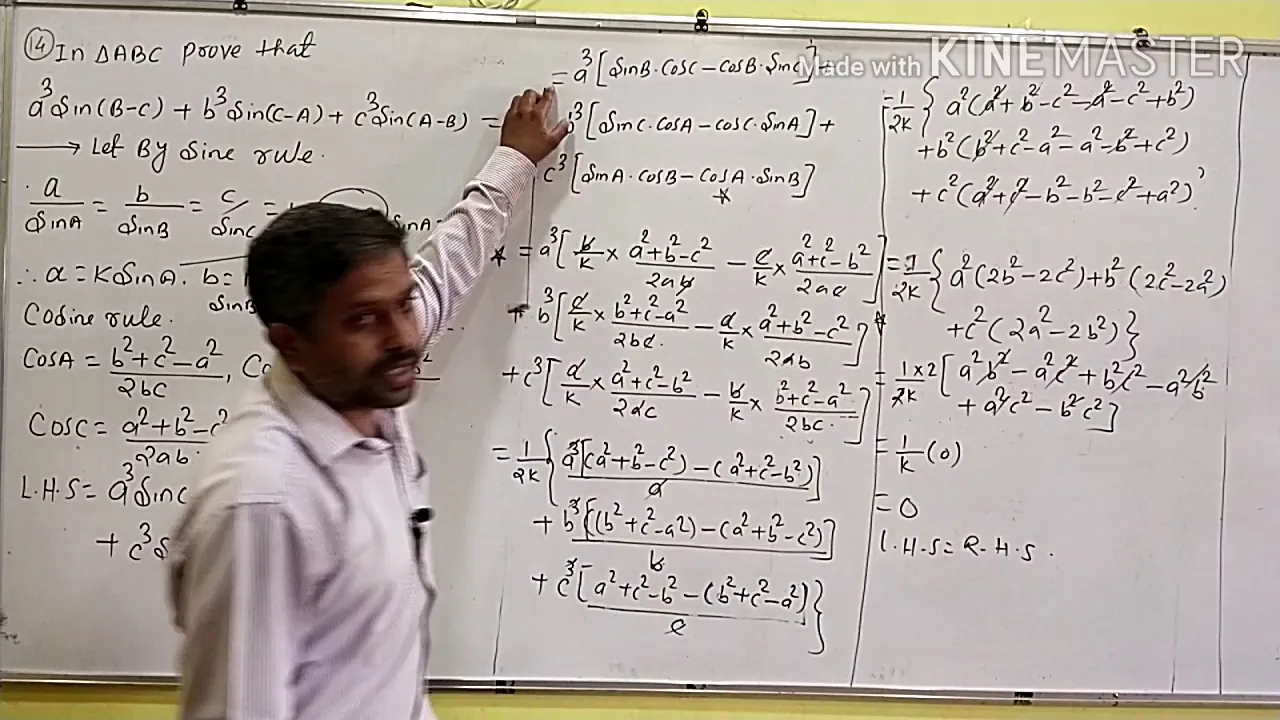 (14) In ΔABC prove that
a³ Sin(B-C) + b³ Sin(C-A) + c³ Sin(A-B) =
→ Let By Sine rule.
a/SinA = b/SinB = c/SinC =
∴ a = K SinA. b =
Cosine rule.
CosA = (b²+c²-a²)/2bc,
CosC = (a²+b²-c²)/2ab.
L.H.S = a³ Sin(
+ c³
= a³ [SinB·CosC - CosB·SinC] +
b³ [SinC·CosA - CosC·SinA] +
c³ [SinA·CosB - CosA·SinB]
* = a³ [b/k × (a²+b²-c²)/2ab - c/k × (a²+c²-b²)/2ac]
+ b³ [c/k × (b²+c²-a²)/2bc. - a/k × (a²+b²-c²)/2ab]
+ c³ [a/k × (a²+c²-b²)/2ac - b/k × (b²+c²-a²)/2bc.]
= 1/2k { a³[(a²+b²-c²) - (a²+c²-b²)]/a
+ b³[(b²+c²-a²) - (a²+b²-c²)]/b
+ c³[a²+c²-b² - (b²+c²-a²)]/c }
Made with KINEMASTER
= 1/2k { a²(a²+b²-c²-a²-c²+b²)
+ b²(b²+c²-a²-a²-b²+c²)
+ c²(a²+c²-b²-b²-c²+a²) }
= 1/2k { a²(2b²-2c²) + b²(2c²-2a²)
+ c²(2a²-2b²) }
= 1×2/2k [ a²b² - a²c² + b²c² - a²b²
+ a²c² - b²c² ]
= 1/k (0)
= 0
L.H.S = R.H.S.